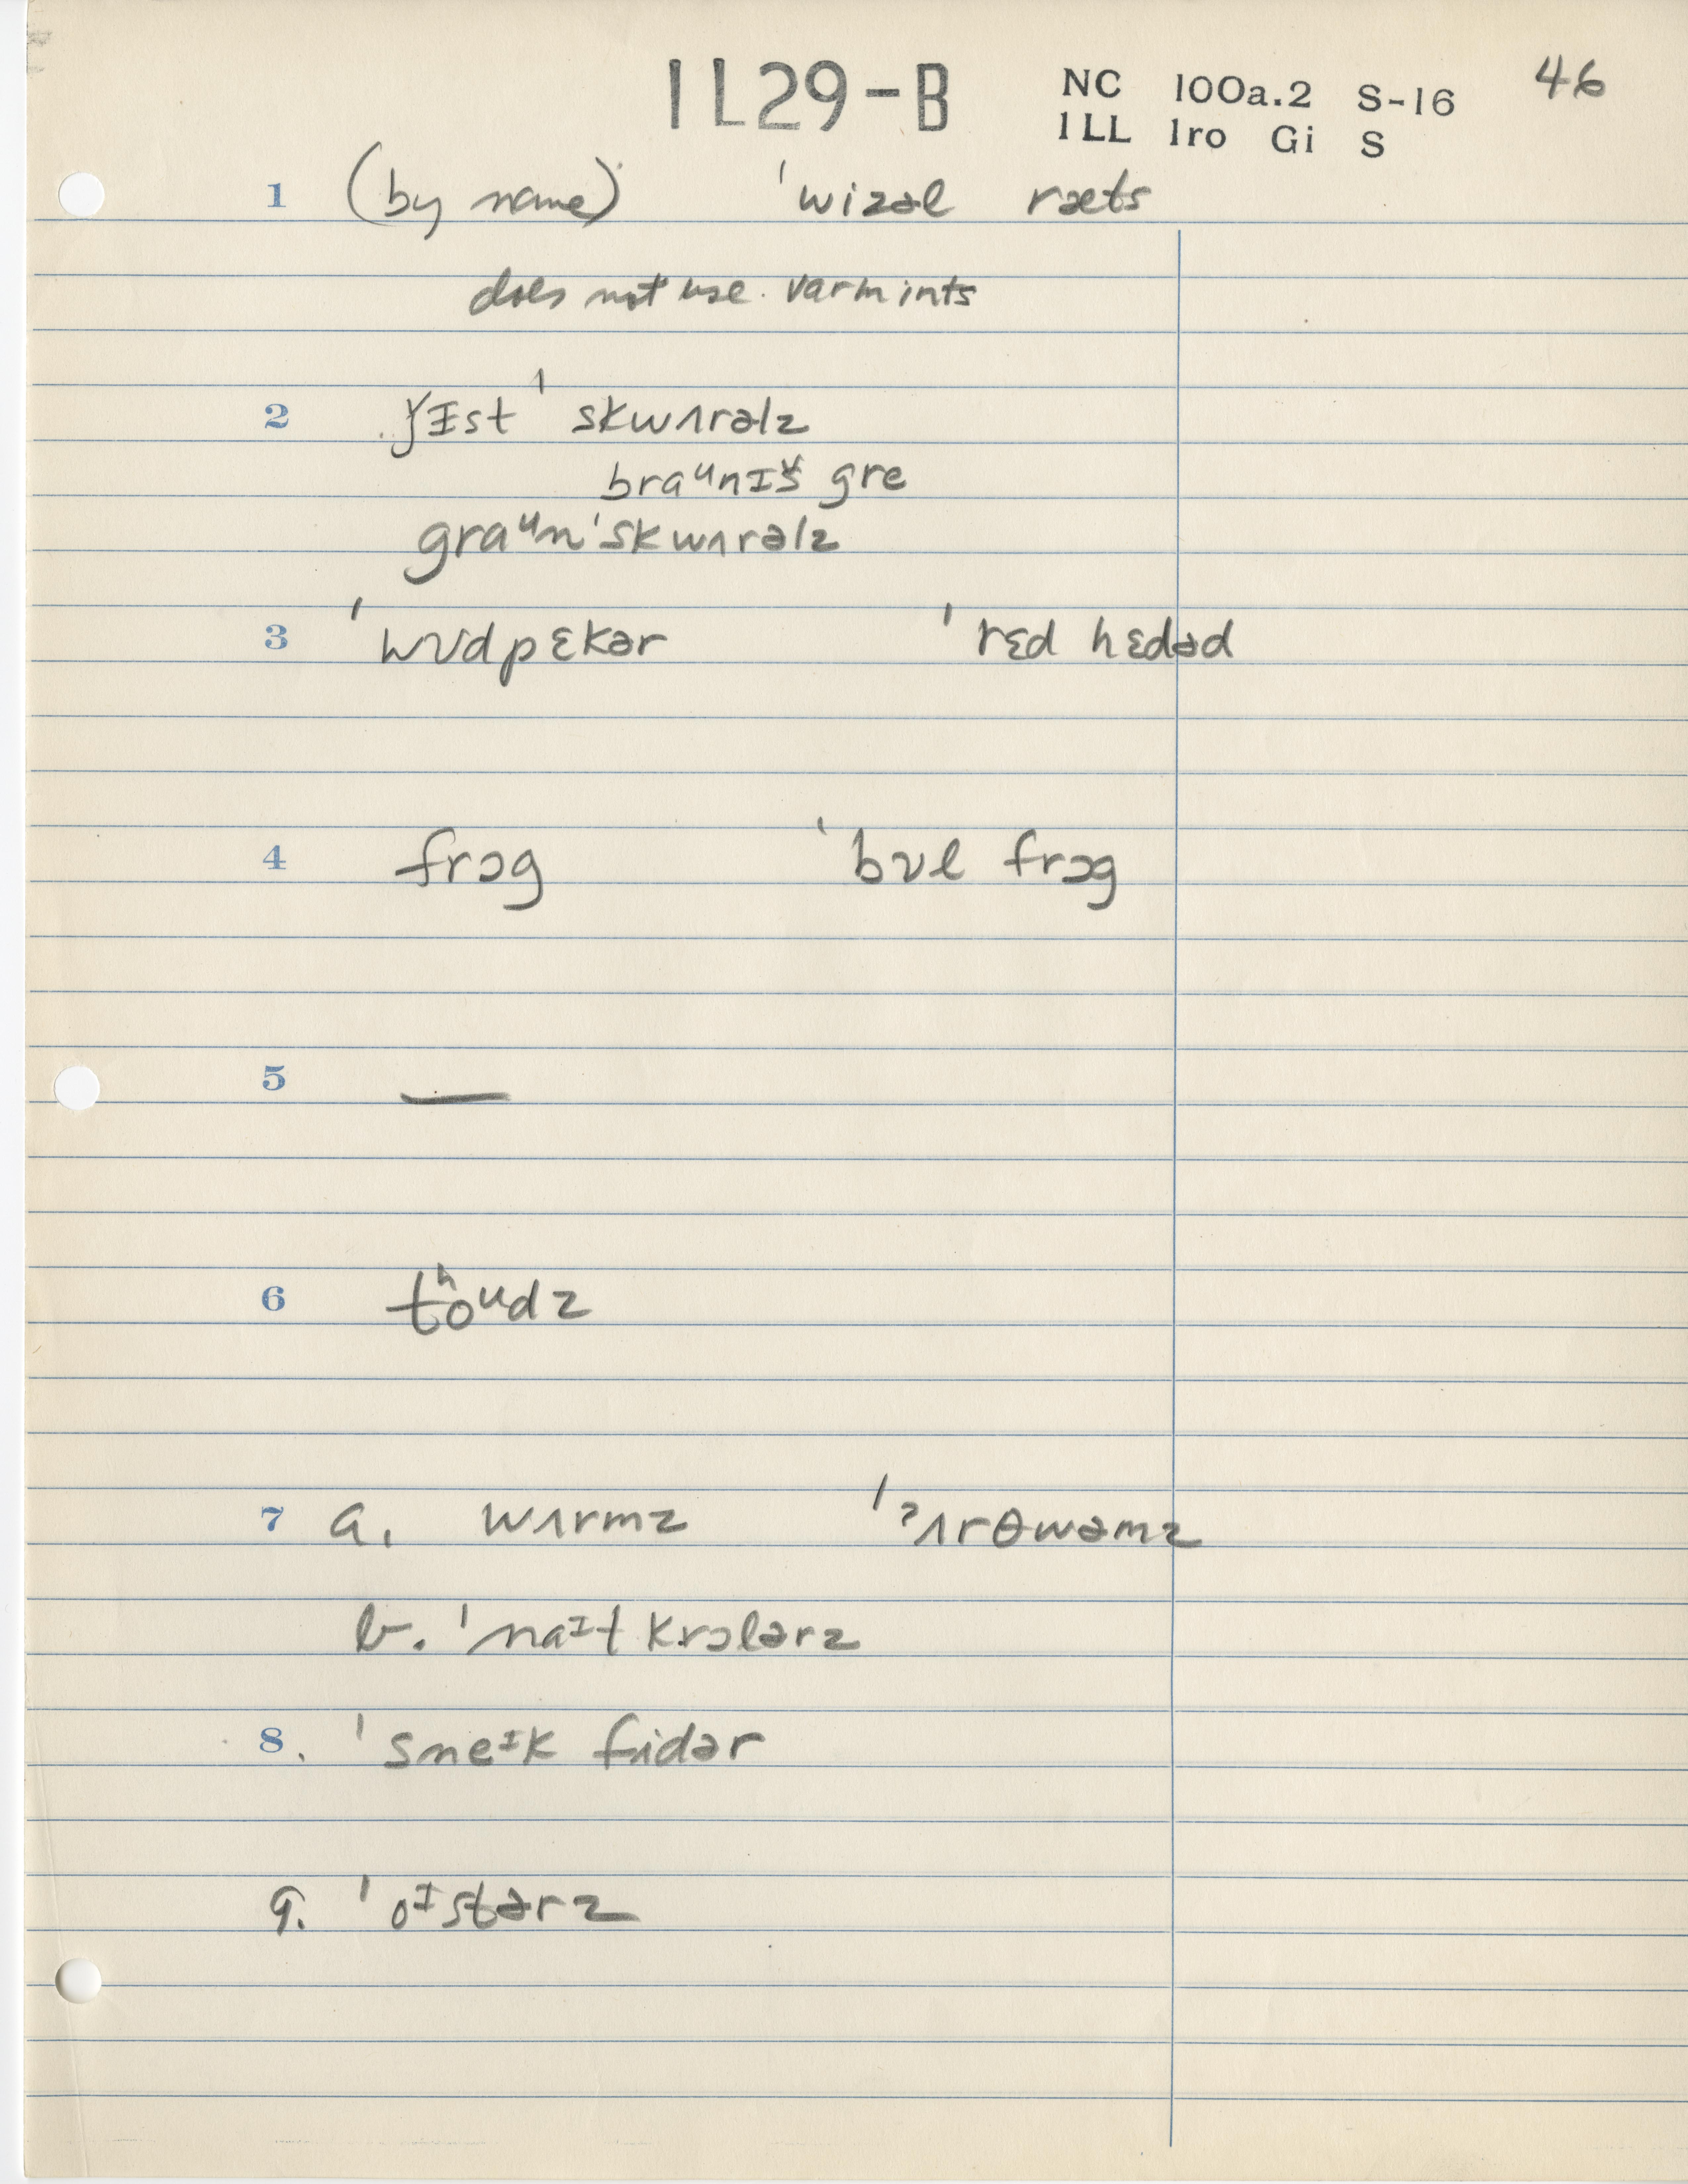 1L29-B NC 100a.2 S-16 46
ILL Iro Gi S
1 (by name) ˈwizəl ræts
does not use varmints
2 ǰɪst ˈskwʌrəlz
braᵘnɪš gre
graᵘnˈskwʌrəlz
3 ˈwʊdpɛkər ˈrɛd hɛdəd
4 frɔg ˈbʊl frɔg
5 —
6 tʰoᵘdz
7 a. wʌrmz ˈʔʌrθwəmz
b. ˈnaᶦt krɔlərz
8. ˈsneᶦk fidər
9. ˈoᶦstərz